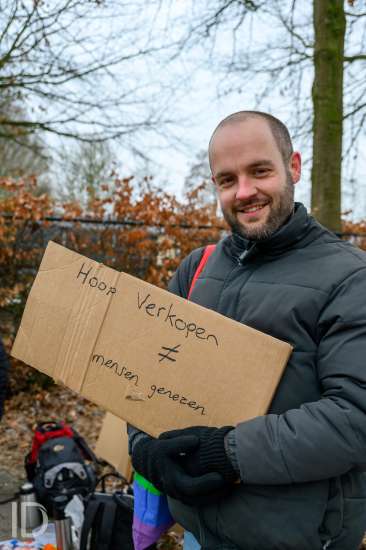 Hoop Verkopen
≠
mensen genezen
ID